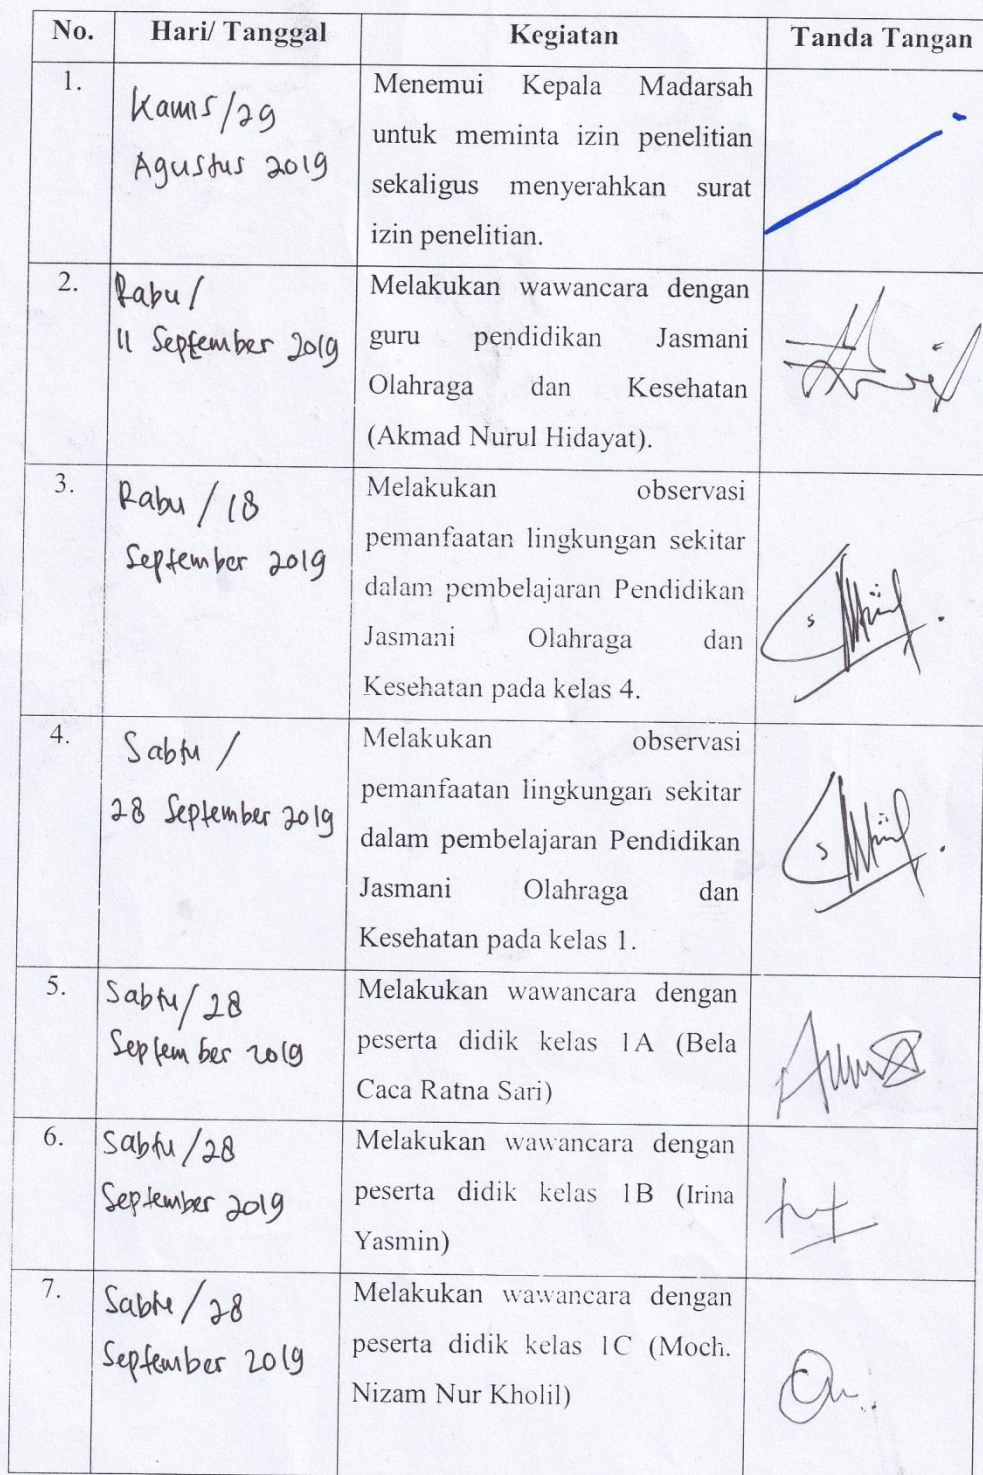 No. Hari/ Tanggal Kegiatan Tanda Tangan
1. Kamis/29
Agustus 2019
Menemui Kepala Madarsah
untuk meminta izin penelitian
sekaligus menyerahkan surat
izin penelitian.
2. Rabu/
11 September 2019
Melakukan wawancara dengan
guru pendidikan Jasmani
Olahraga dan Kesehatan
(Akmad Nurul Hidayat).
3. Rabu / 18
September 2019
Melakukan observasi
pemanfaatan lingkungan sekitar
dalam pembelajaran Pendidikan
Jasmani Olahraga dan
Kesehatan pada kelas 4.
4. Sabtu /
28 September 2019
Melakukan observasi
pemanfaatan lingkungan sekitar
dalam pembelajaran Pendidikan
Jasmani Olahraga dan
Kesehatan pada kelas 1.
5. Sabtu/28
September 2019
Melakukan wawancara dengan
peserta didik kelas 1A (Bela
Caca Ratna Sari)
6. Sabtu/28
September 2019
Melakukan wawancara dengan
peserta didik kelas 1B (Irina
Yasmin)
7. Sabtu/28
September 2019
Melakukan wawancara dengan
peserta didik kelas 1C (Moch.
Nizam Nur Kholil)